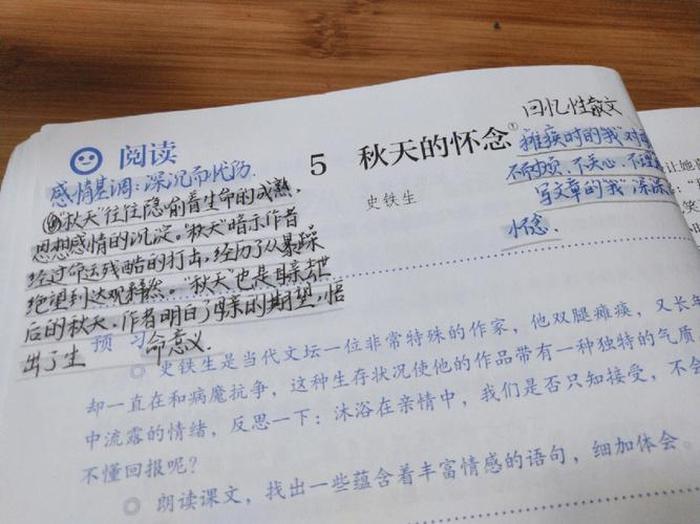 阅读
感情基调:深沉而忧伤.
"秋天"往往隐喻着生命的成熟,
思想感情的沉淀。"秋天"暗示作者
经过命运残酷的打击,经历了从暴躁
绝望到达观释然。"秋天"也是母亲去世
后的秋天,作者明白了母亲的期望,悟
出了生
命意义.
5 秋天的怀念①
史铁生
回忆性散文
瘫痪时的"我"对
不耐烦、不关心、不理
写文章的"我"深深
怀念.
让她
预 习
◎ 史铁生是当代文坛一位非常特殊的作家,他双腿瘫痪,又长年
却一直在和病魔抗争,这种生存状况使他的作品带有一种独特的气质
中流露的情绪,反思一下:沐浴在亲情中,我们是否只知接受,不会
不懂回报呢?
◎ 朗读课文,找出一些蕴含着丰富情感的语句,细加体会。